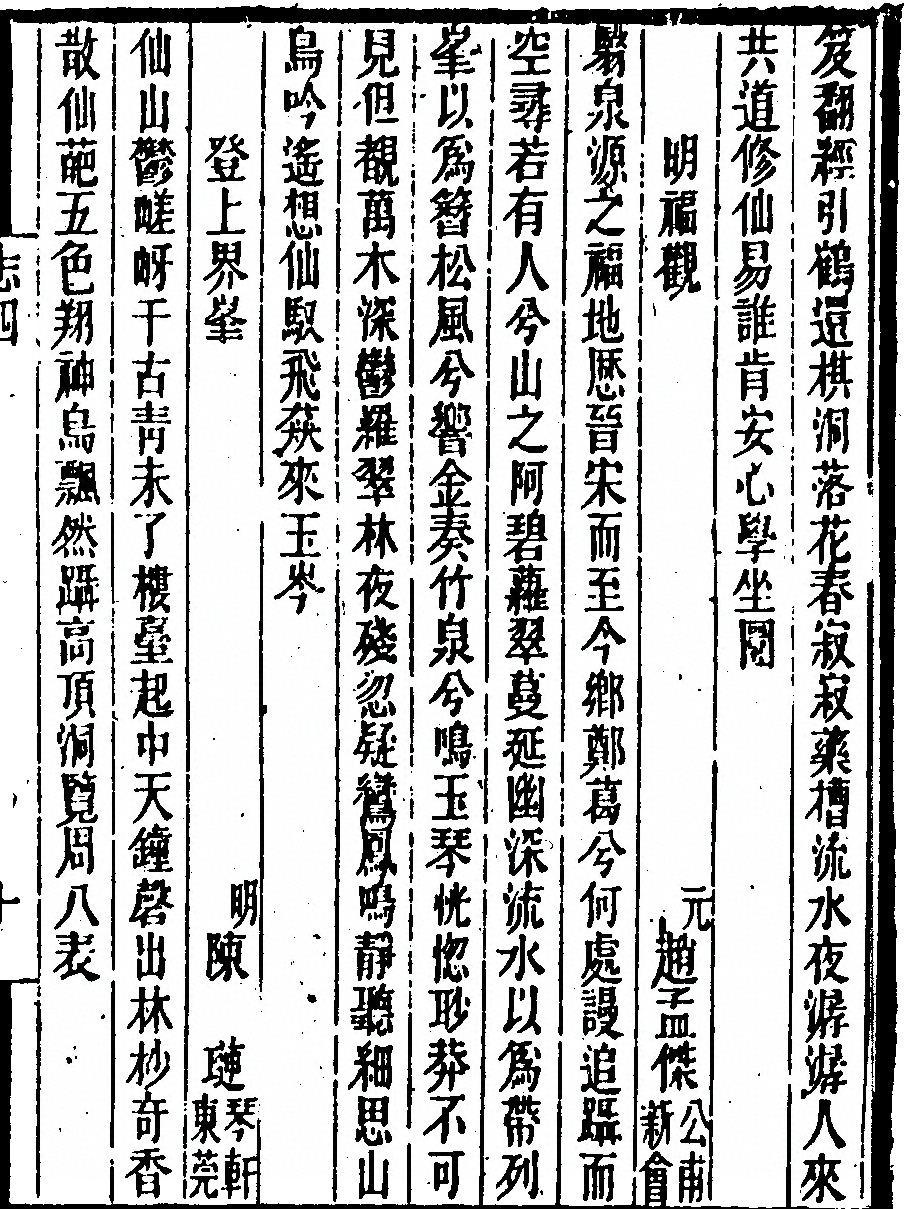 笈翻經引鶴還棋洞落花春寂寂藥槽流水夜潺潺人來
共道修仙易誰肯安心學坐關
明福觀 元趙孟傑公甫新會
泉源之福地歷晉宋而至今鄉鄭葛兮何處謾追躡而
空尋若有人兮山之阿碧蘿翠蔓延幽深流水以爲帶列
峯以爲簪松風兮響金奏竹泉兮鳴玉琴恍惚眇莽不可
見但覩萬木深鬱羅翠林夜殘忽疑鸞鳳鳴靜聽細思山
鳥吟遙想仙馭飛來玉岑
登上界峯 明陳璉琴軒東莞
仙山鬱嵯岈千古青未了樓臺起中天鐘磬出林杪奇香
散仙葩五色翔神鳥飄然躡高頂洞覽周八表
志四
十